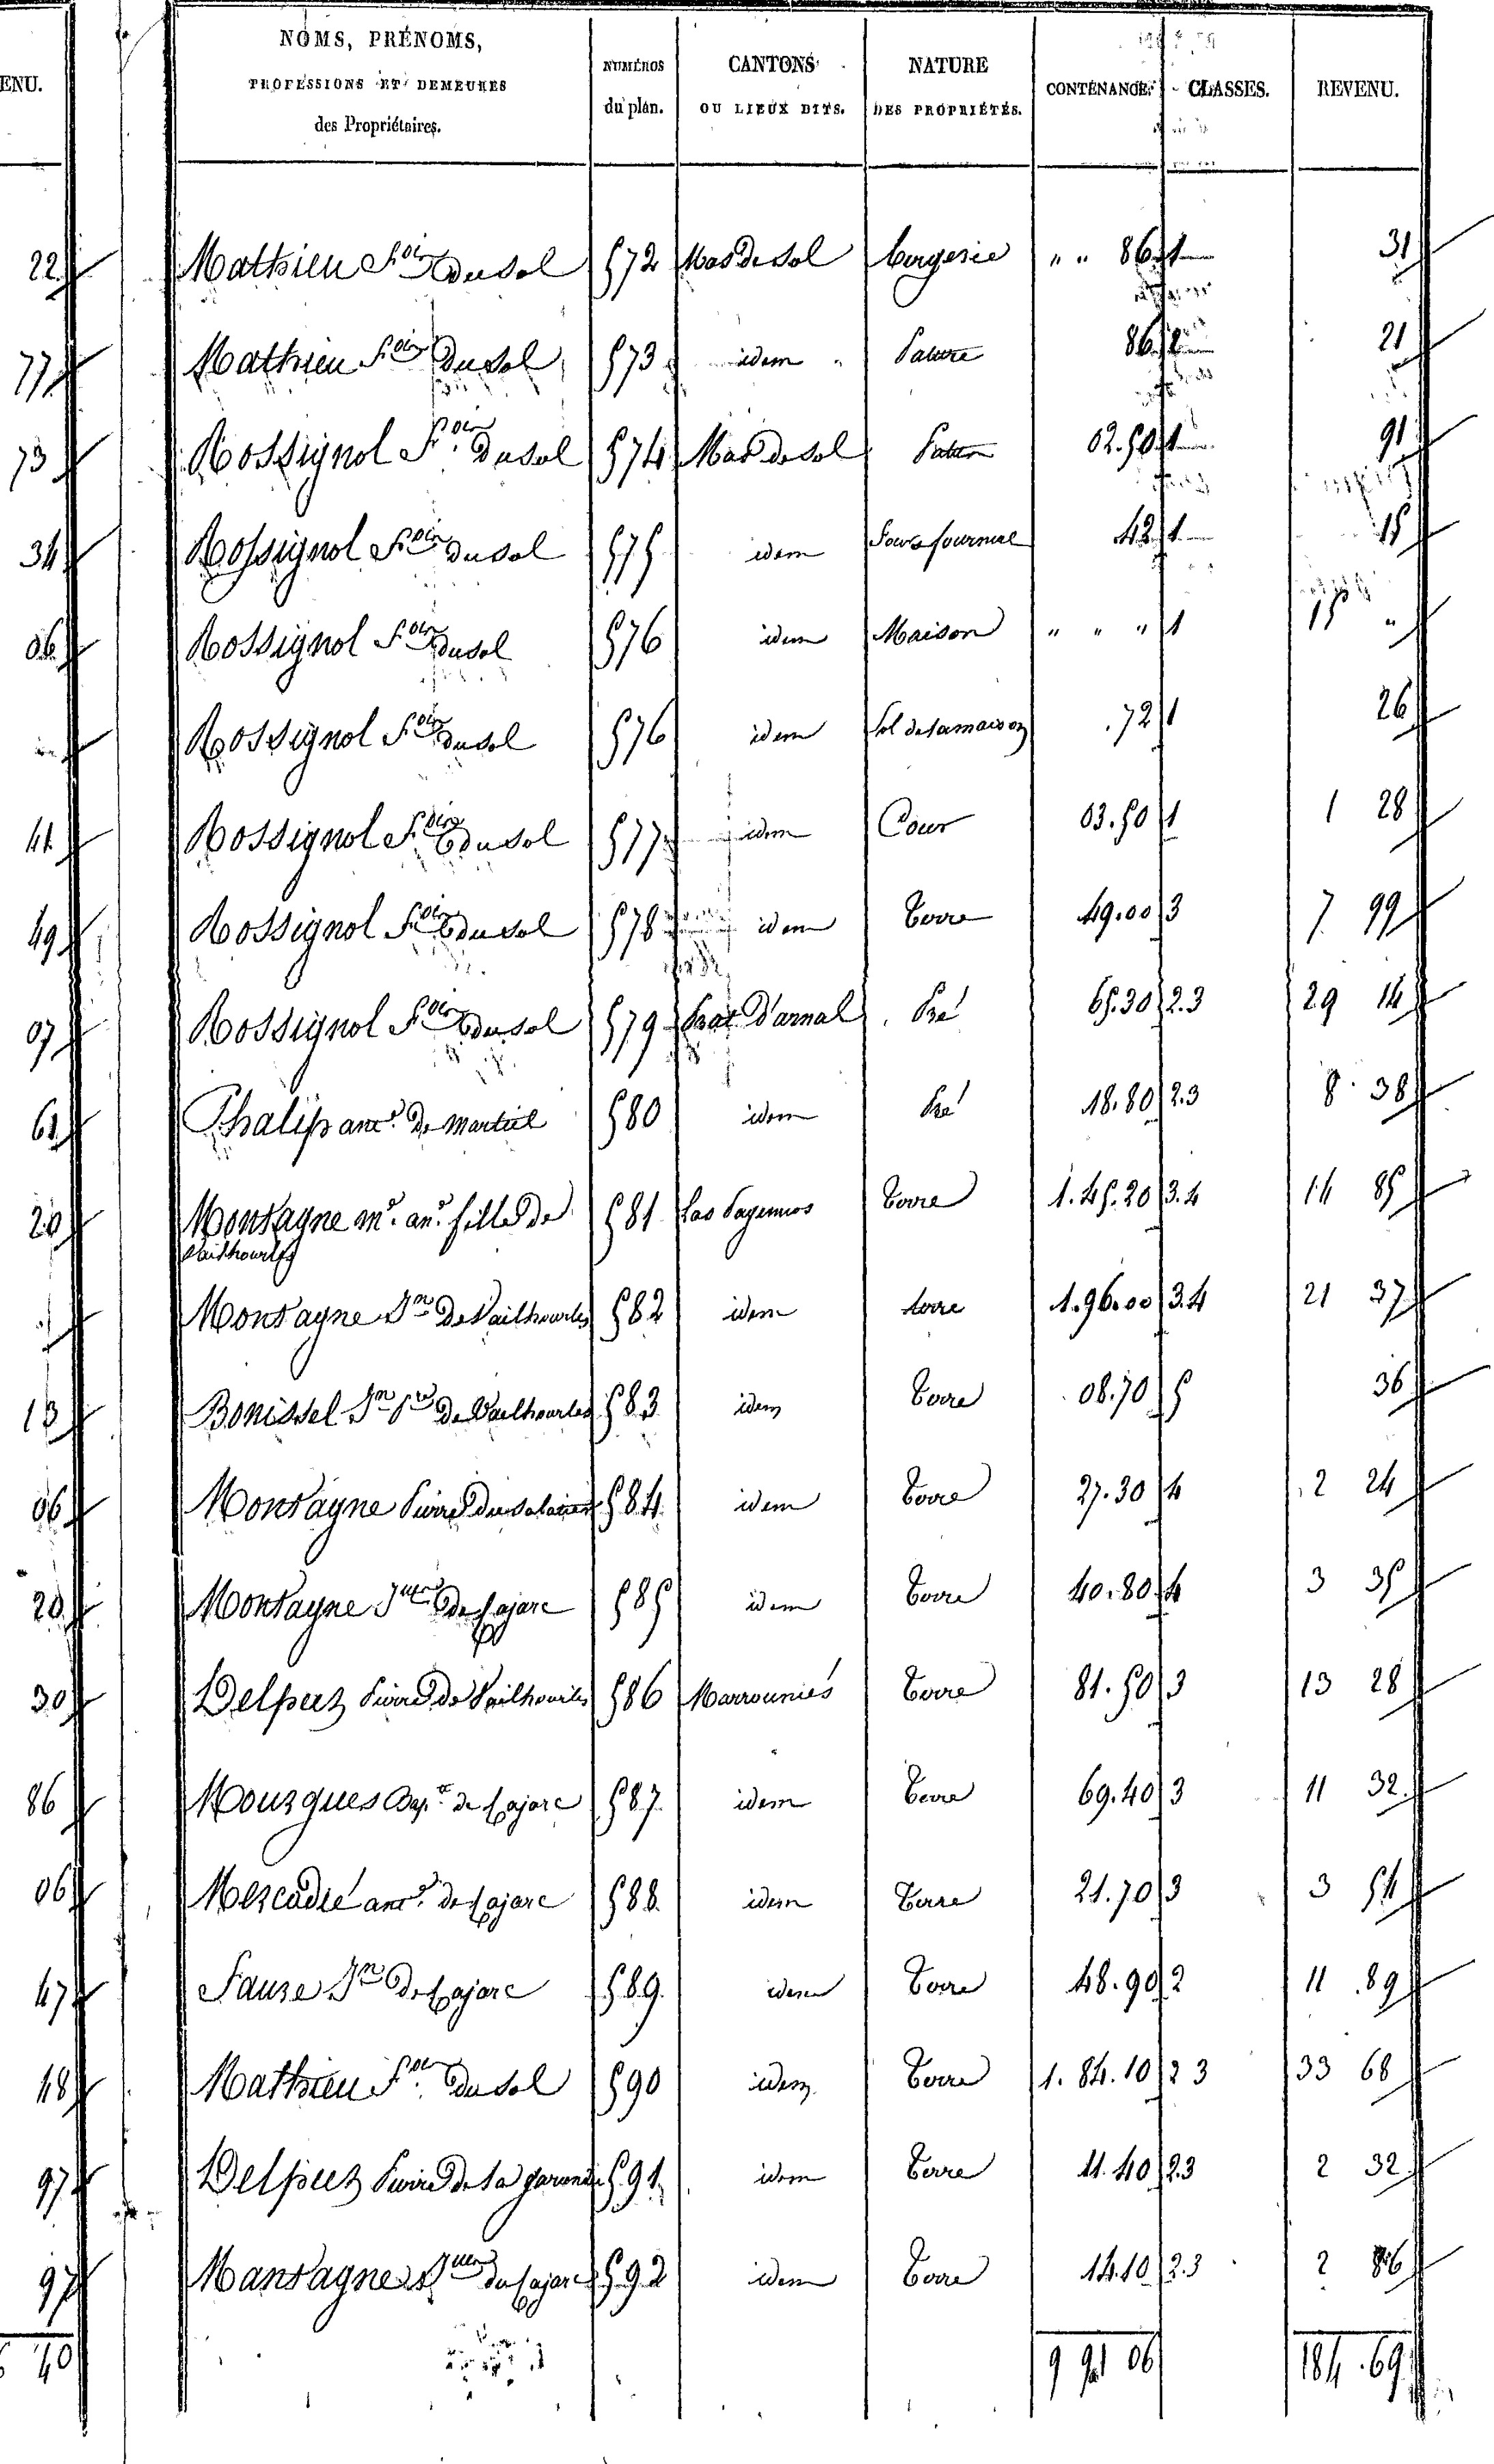 ENU.
NOMS, PRÉNOMS, PROFESSIONS ET DEMEURES des Propriétaires. NUMÉROS du plan. CANTONS OU LIEUX DITS. NATURE DES PROPRIÉTÉS. CONTENANCE. CLASSES. REVENU.
22 Mathieu Fois du sol 572 Mas de sol bergerie " " 86 1 31
77 Mathieu Fois du sol 573 idem Pature 86 2 21
73 Rossignol Fois du sol 574 Mas de sol Pature 02.50 1 91
34 Rossignol Fois du sol 575 idem 42 1 15
06 Rossignol Fois du sol 576 idem Maison " " " 1 15 "
Rossignol Fois du sol 576 idem Sol de la maison 72 1 26
41 Rossignol Fois du sol 577 idem Cour 03.50 1 1 28
49 Rossignol Fois du sol 578 idem terre 49.00 3 7 99
07 Rossignol Fois du sol 579 Prat D'arnal Pré 65.30 2.3 29 14
61 Phalip ane. de Martiel 580 idem Pré 18.80 2.3 8 38
20 Montagne me. ane. fille de Vailhourles 581 Las terre 1.45.20 3.4 14 85
Montagne Jn De Vailhourles 582 idem terre 1.96.00 3.4 21 37
13 Bonissel Jn Pre De Vailhourles 583 idem terre 08.70 5 36
06 Montagne Pierre 584 idem terre 27.30 4 2 24
20 Montagne Jques de Cajarc 585 idem terre 40.80 4 3 35
30 Delpuz Pierre de Vailhourles 586 Marrouniés terre 81.50 3 13 28
86 Mouzgues Bapte de Cajarc 587 idem terre 69.40 3 11 32
06 Mercadié ane. de Cajarc 588 idem terre 21.70 3 3 54
47 Fauze Jn de Cajarc 589 idem terre 48.90 2 11 89
48 Mathieu Fois du sol 590 idem terre 1.84.10 2 3 33 68
97 Delpuz Pierre de la 591 idem terre 11.40 2.3 2 32
97 Mantagne Jques de Cajarc 592 idem terre 14.10 2.3 2 86
40 9 91 06 184.69